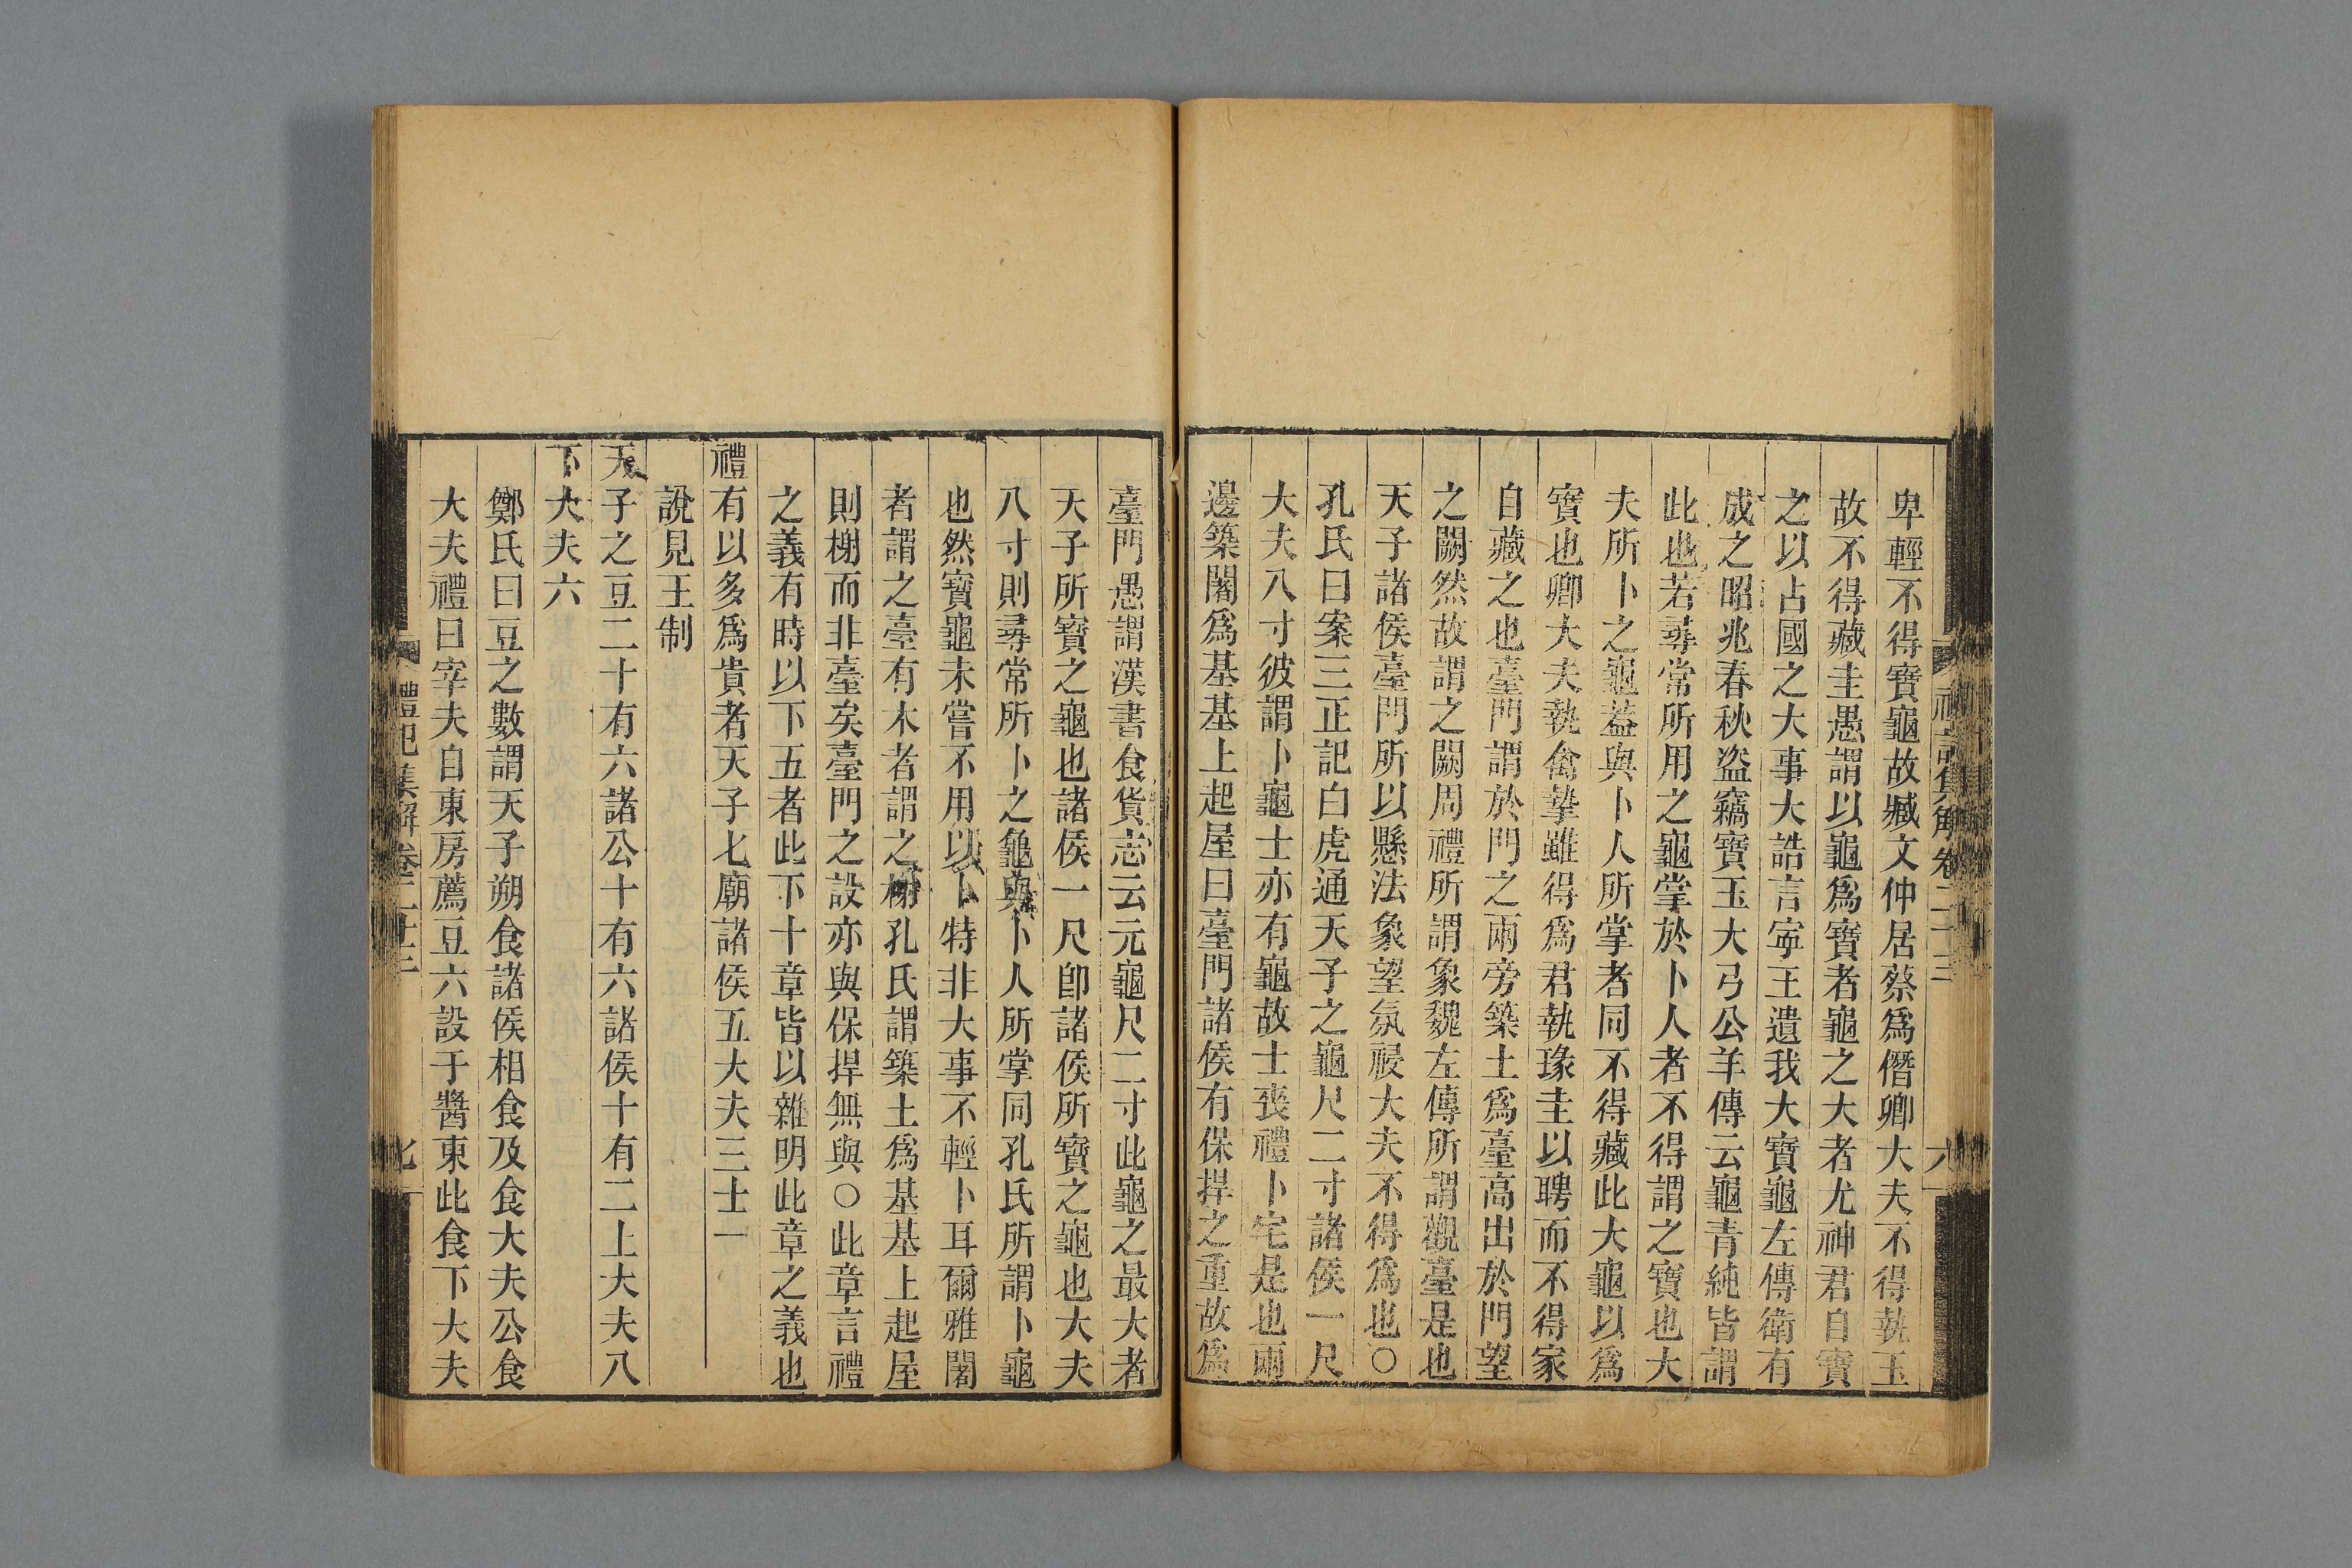 禮記集解卷二十三
六
卑輕不得寶龜故臧文仲居蔡爲僭卿大夫不得執玉
故不得藏圭愚謂以龜爲寶者龜之大者尤神君自寶
之以占國之大事大誥言寍王遺我大寶龜左傳衛有
成之昭兆春秋盜竊寶玉大弓公羊傳云龜青純皆謂
此也若尋常所用之龜掌於卜人者不得謂之寶也大
夫所卜之龜蓋與卜人所掌者同不得藏此大龜以爲
寶也卿大夫執禽摯雖得爲君執瑑圭以聘而不得家
自藏之也臺門謂於門之兩旁築土爲臺高出於門望
之闕然故謂之闕周禮所謂象魏左傳所謂觀臺是也
天子諸侯臺門所以懸法象望氛祲大夫不得爲也○
孔氏曰案三正記白虎通天子之龜尺二寸諸侯一尺
大夫八寸彼謂卜龜士亦有龜故士喪禮卜宅是也兩
邊築闍爲基基上起屋曰臺門諸侯有保捍之重故爲
臺門愚謂漢書食貨志云元龜尺二寸此龜之最大者
天子所寶之龜也諸侯一尺卽諸侯所寶之龜也大夫
八寸則尋常所卜之龜與卜人所掌同孔氏所謂卜龜
也然寶龜未嘗不用以卜特非大事不輕卜耳爾雅闍
者謂之臺有木者謂之榭孔氏謂築土爲基基上起屋
則榭而非臺矣臺門之設亦與保捍無與○此章言禮
之義有時以下五者此下十章皆以雜明此章之義也
禮有以多爲貴者天子七廟諸侯五大夫三士一
說見王制
天子之豆二十有六諸公十有六諸侯十有二上大夫八
下大夫六
鄭氏曰豆之數謂天子朔食諸侯相食及食大夫公食
大夫禮曰宰夫自東房薦豆六設于醬東此食下大夫
禮記集解卷二十三
七